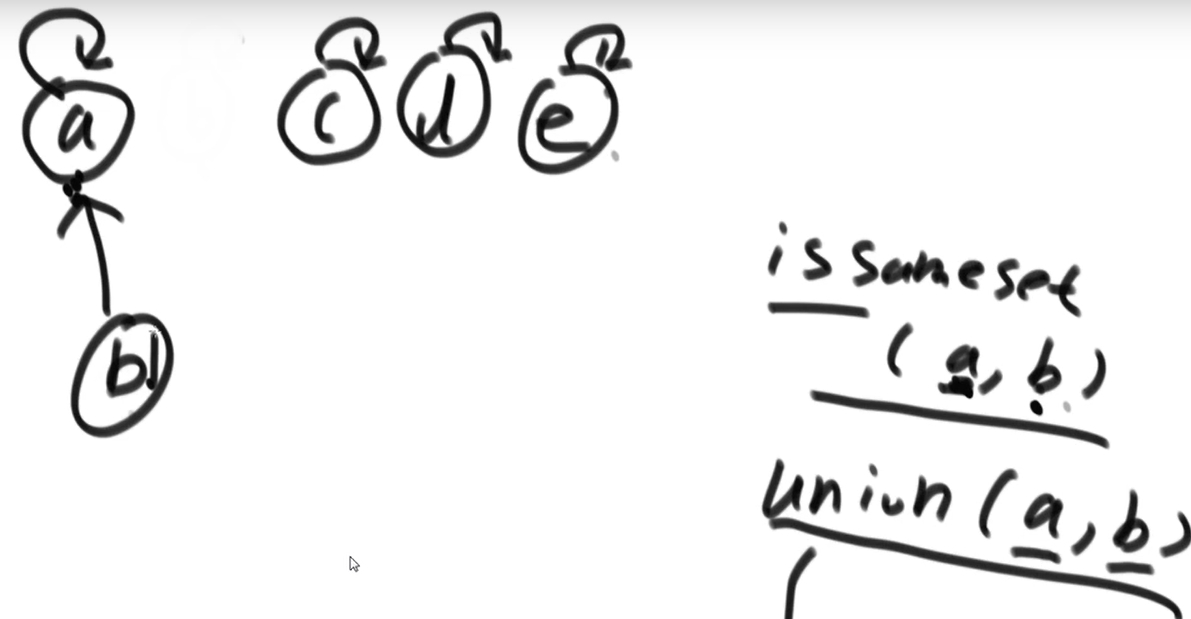 a c d e
b
issameset
(a, b)
union(a, b)